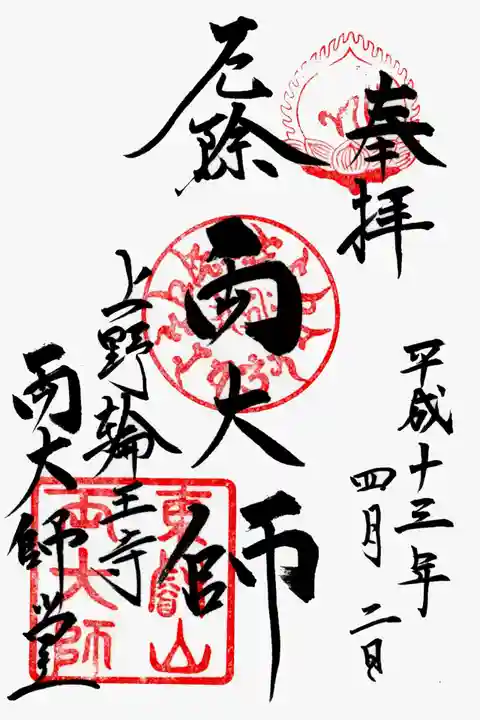 奉拝
平成十三年
四月二日
厄除
両大師
上野輪王寺
両大師堂
東叡山
両大師